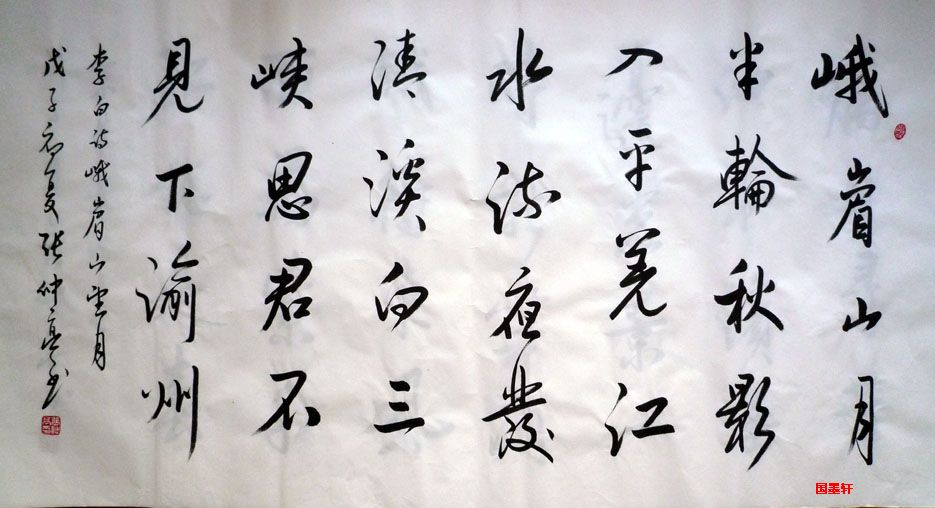 峨嵋山月
半輪秋影
入平羌江
水流夜發
清溪向三
峽思君不
見下渝州
李白诗峨嵋山月
戊子初夏张仲亭书
国墨轩